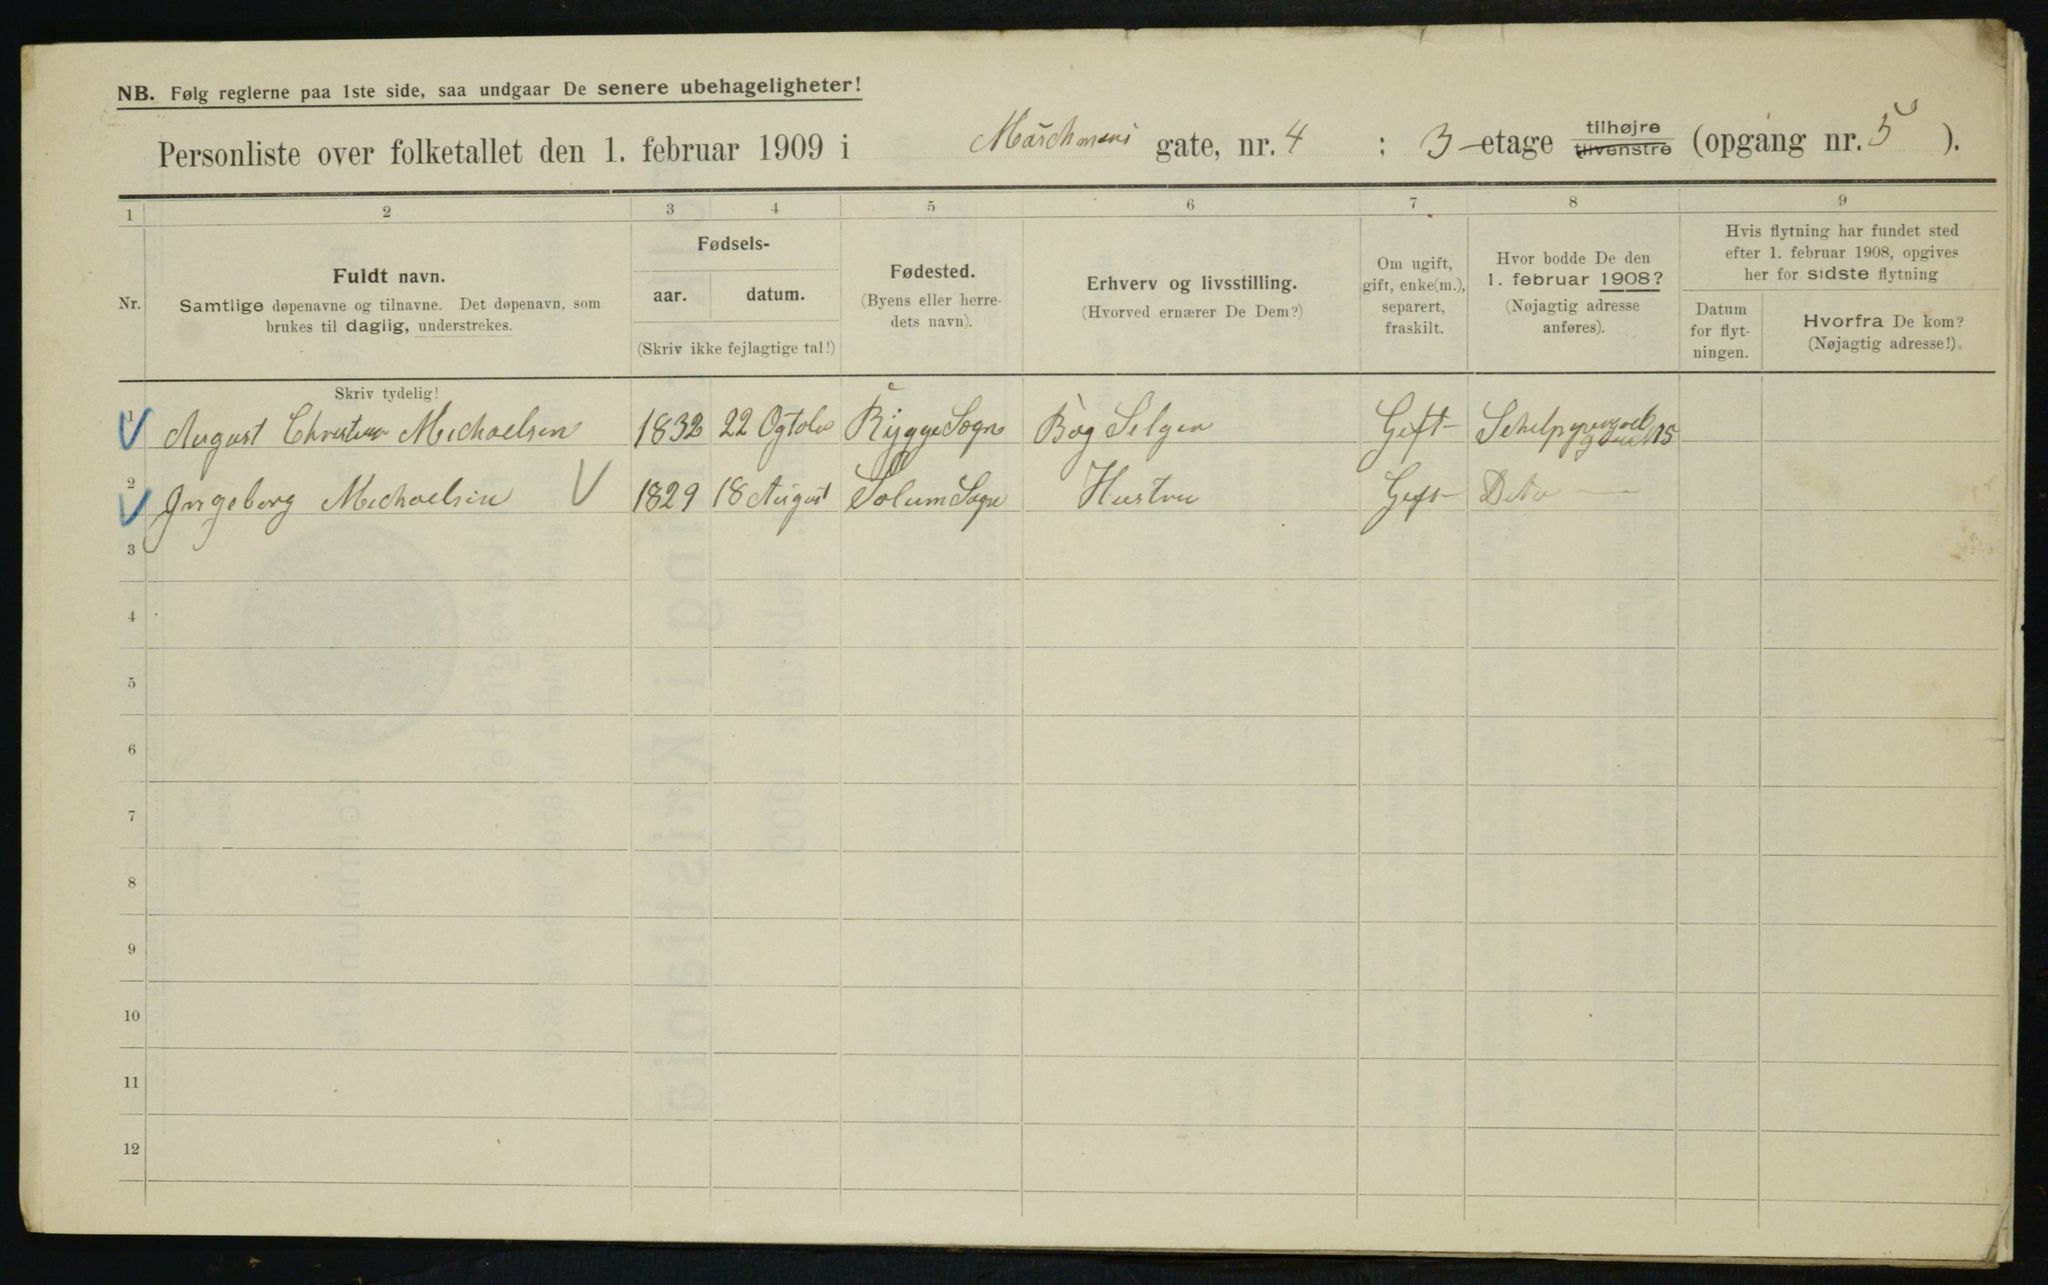 NB. Følg reglerne paa 1ste side, saa undgaar De senere ubehageligheter!
Personliste over folketallet den 1. februar 1909 i Maschmans gate, nr. 4 ; 3 etage tilhøjre tilvenstre (opgang nr. 5 ).
1 2 3 4 5 6 7 8 9
Nr.
Fuldt navn.
Samtlige døpenavne og tilnavne. Det døpenavn, som
brukes til daglig, understrekes.
Fødsels-
aar. datum.
(Skriv ikke fejlagtige tal!)
Fødested.
(Byens eller herre-
dets navn).
Erhverv og livsstilling.
(Hvorved ernærer De Dem?)
Om ugift,
gift, enke(m.),
separert,
fraskilt.
Hvor bodde De den
1. februar 1908?
(Nøjagtig adresse
anføres).
Hvis flytning har fundet sted
efter 1. februar 1908, opgives
her for sidste flytning
Datum
for flyt-
ningen.
Hvorfra De kom?
(Nøjagtig adresse!).
Skriv tydelig!
1 August Christian Michaelsen 1832 22 Ogtober Rygge Sogn Bog Selger Geft 15
2 Ingeborg Michaelsen 1829 18 August Solum Sogn Hustru Geft Deto
3
4
5
6
7
8
9
10
11
12